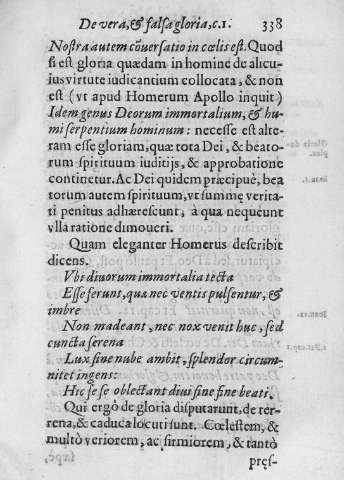 De vera, & falsa gloria, c.1. 338
Nostra autem cōuersatio in cœlis est. Quod
si est gloria quædam in homine de alicu-
ius virtute iudicantium collocata, & non
est (vt apud Homerum Apollo inquit)
Idem genus Deorum immortalium, & hu-
mi serpentium hominum: necesse est alte-
ram esse gloriam, quæ tota Dei, & beato-
rum spirituum iuditijs, & approbatione
continetur. Ac Dei quidem præcipuè, bea
torum autem spirituum, vt summę verita-
ti penitus adhærescunt, à qua nequeunt
vlla ratione dimoueri.
Quam eleganter Homerus describit
dicens.
Vbi diuorum immortalia tecta
Esse ferunt, quæ nec ventis pulsentur, &
imbre
Non madeant, nec nox venit huc, sed
cuncta serena
Lux sine nube ambit, splendor circum-
nitet ingens:
Hic se se oblectant diui sine fine beati.
Qui ergò de gloria disputarunt, de ter-
rena, & caduca locuti sunt. Cœlestem, &
multò veriorem, ac firmiorem, & tantò
pręs-